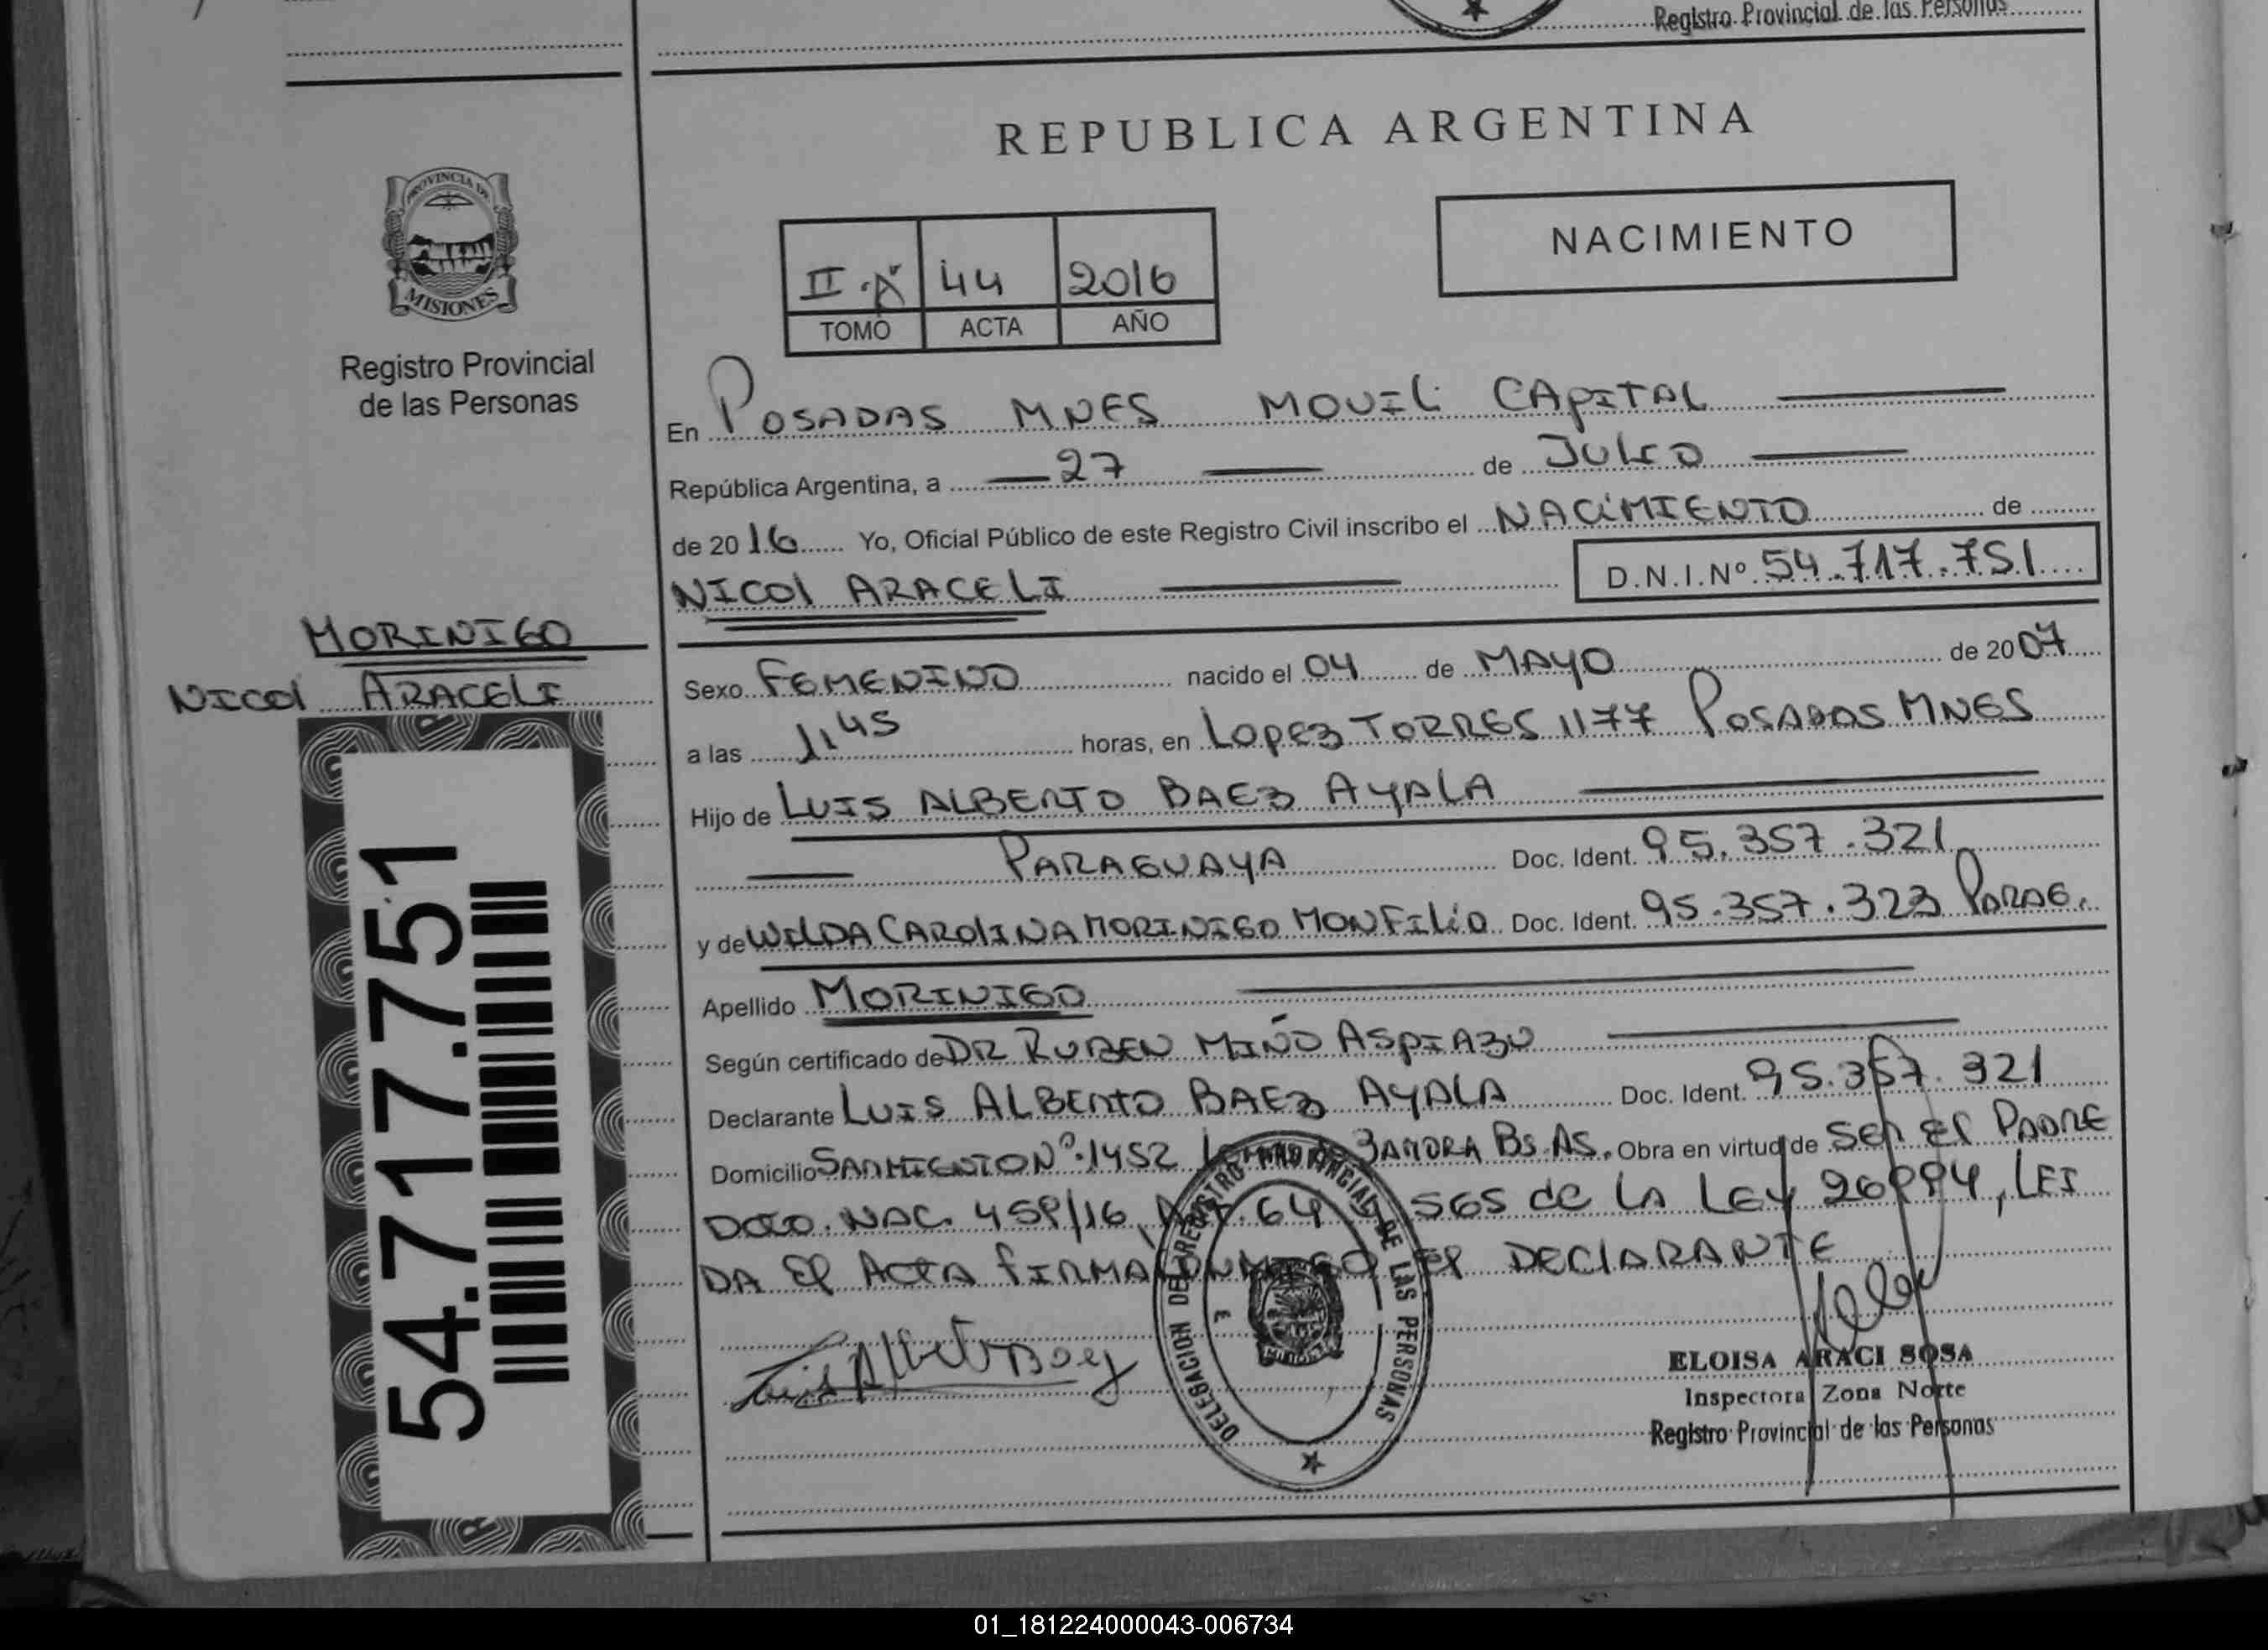 Registro Provincial de las Personas
REPUBLICA ARGENTINA
PROVINCIA DE
MISIONES
Registro Provincial
de las Personas
NACIMIENTO
II "A" 44 2016
TOMO ACTA AÑO
En POSADAS MNES MOVIL CAPITAL
República Argentina, a 27 de JULIO
de 2016 Yo, Oficial Público de este Registro Civil inscribo el NACIMIENTO de
NICOL ARACELI D.N.I.Nº 54.717.751
MORINIGO
NICOL ARACELI
54.717.751
Sexo FEMENINO nacido el 04 de MAYO de 2007
a las 11 45 horas, en LOPEZ TORRES 1177 POSADAS MNES
Hijo de LUIS ALBERTO BAEZ AYALA
PARAGUAYA Doc. Ident. 95.357.321
y de WILDA CAROLINA MORINIGO MONFILIO Doc. Ident. 95.357.323 PARAG.
Apellido MORINIGO
Según certificado de DR RUBEN MIÑO ASPIAZU
Declarante LUIS ALBERTO BAEZ AYALA Doc. Ident. 95.357.321
Domicilio SARMIENTO Nº 1452 ZAMORA BS.AS. Obra en virtud de SER EL PADRE
NAC. 459/16, 64 de LA LEY 26994, LEI
DA EL ACTA FIRMA CONMIGO EL DECLARANTE
Luis Alberto Baez
DELEGACION DEL REGISTRO PROVINCIAL DE LAS PERSONAS
ELOISA ARACI SOSA
Inspectora Zona Norte
Registro Provincial de las Personas
01_181224000043-006734